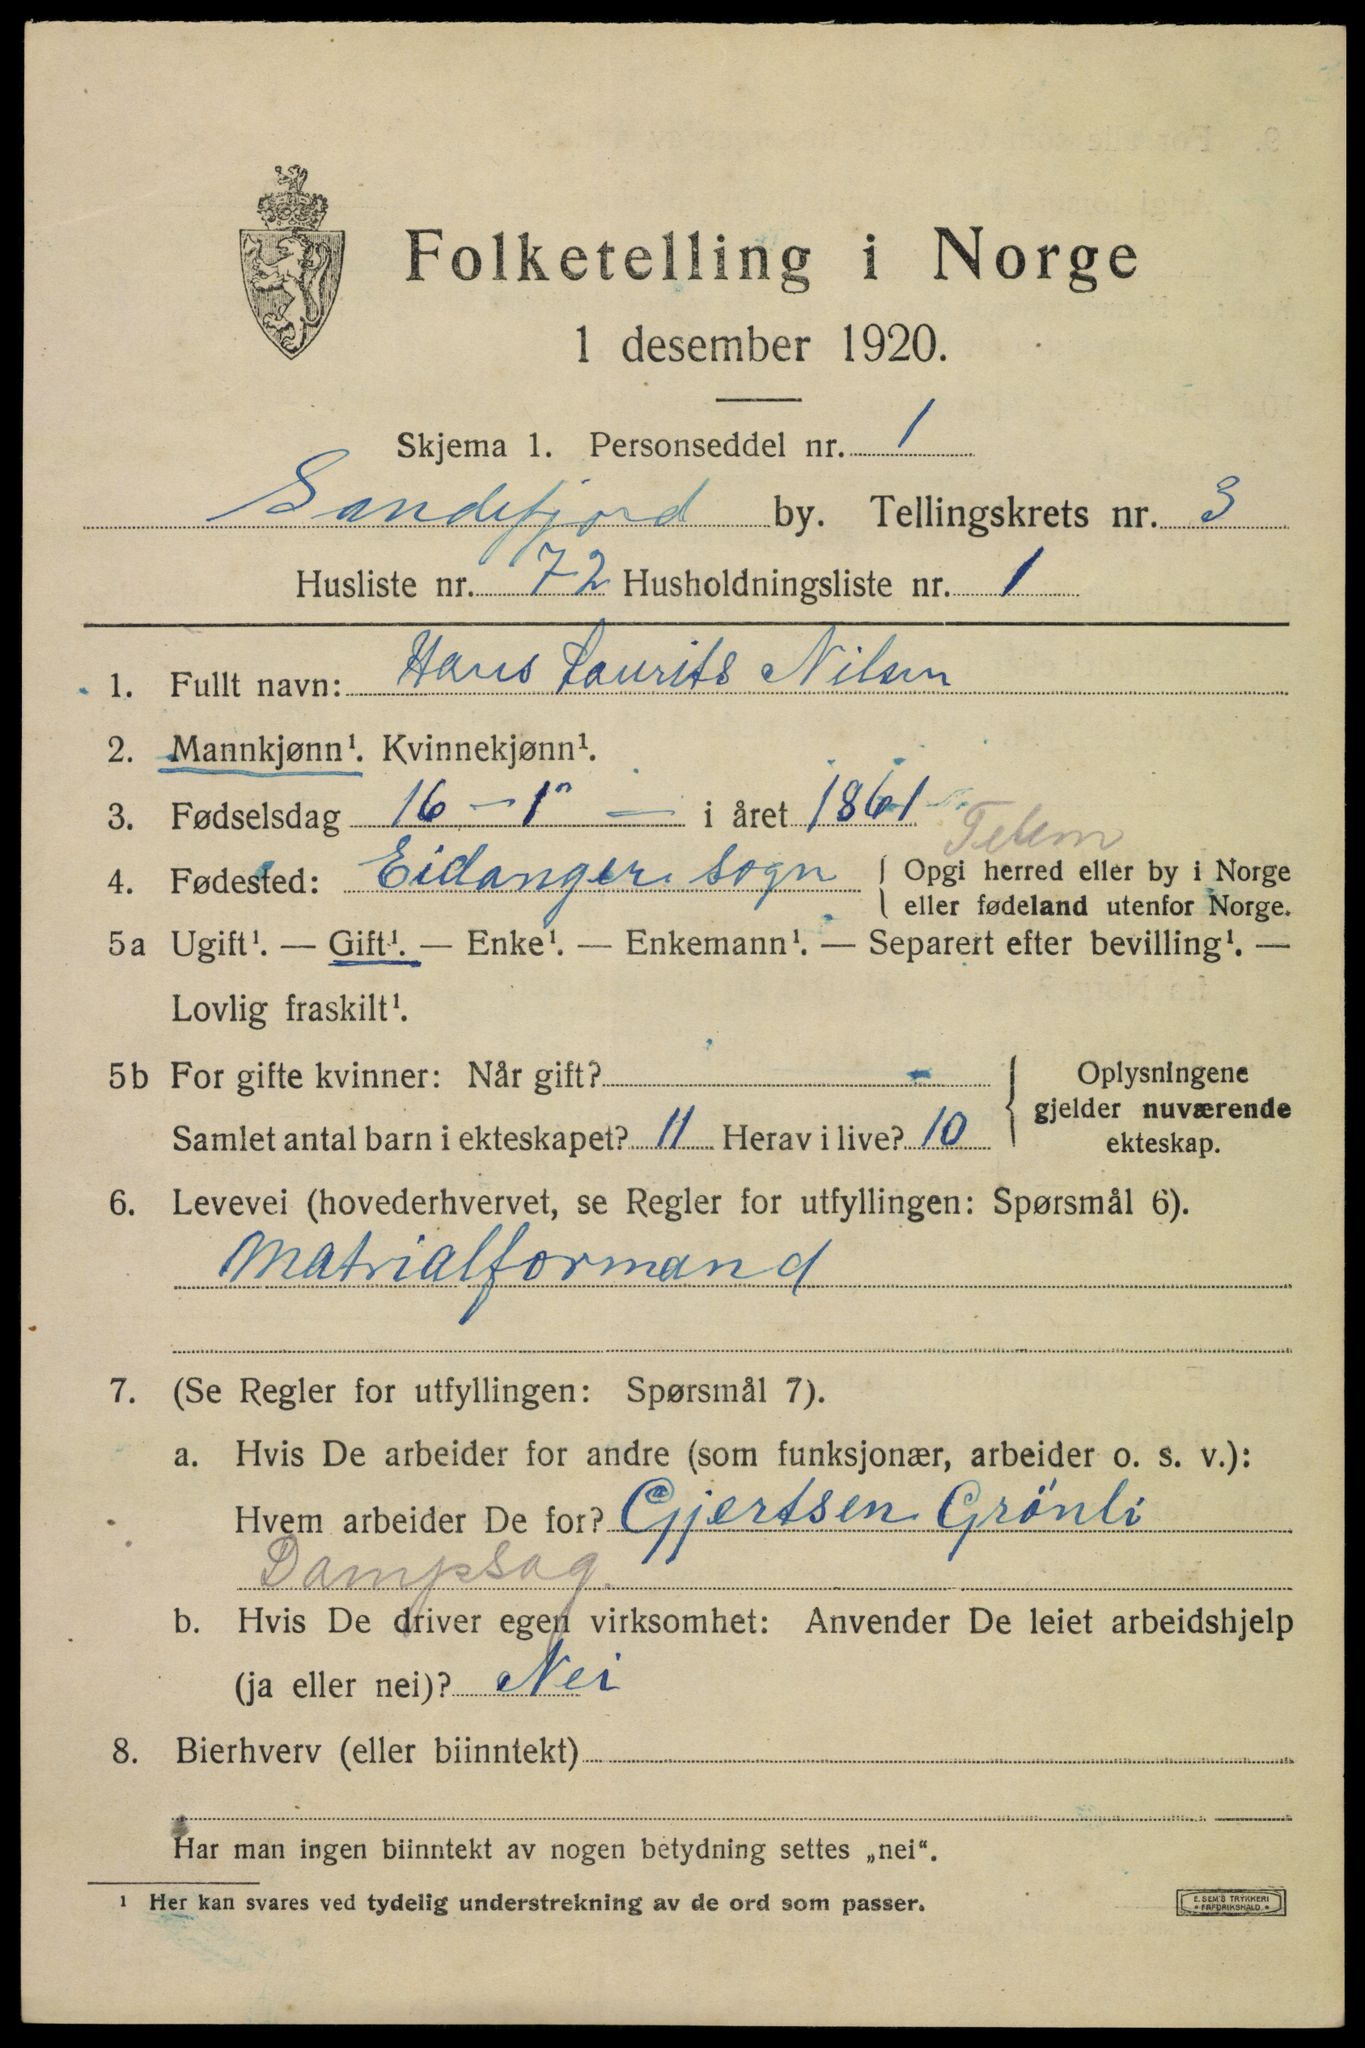 Folketelling i Norge
1 desember 1920.
Skjema 1. Personseddel nr. 1
Sandefjord by. Tellingskrets nr. 3
Husliste nr. 72 Husholdningsliste nr. 1
1. Fullt navn: Hans Laurits Nilsen
2. Mannkjønn¹. Kvinnekjønn¹.
3. Fødselsdag 16 – 1 – i året 1861
Telem
4. Fødested: Eidanger sogn { Opgi herred eller by i Norge
eller fødeland utenfor Norge.
5a Ugift¹. — Gift¹. — Enke¹. — Enkemann¹. — Separert efter bevilling¹. —
Lovlig fraskilt¹.
5b For gifte kvinner: Når gift? -
Samlet antal barn i ekteskapet? 11 Herav i live? 10
{ Oplysningene
gjelder nuværende
ekteskap.
6. Levevei (hovederhvervet, se Regler for utfyllingen: Spørsmål 6).
Matrialformand
7. (Se Regler for utfyllingen: Spørsmål 7).
a. Hvis De arbeider for andre (som funksjonær, arbeider o. s. v.):
Hvem arbeider De for? Gjertsen Grönli
Dampsag.
b. Hvis De driver egen virksomhet: Anvender De leiet arbeidshjelp
(ja eller nei)? Nei
8. Bierhverv (eller biinntekt)
Har man ingen biinntekt av nogen betydning settes „nei“.
¹ Her kan svares ved tydelig understrekning av de ord som passer.
E. SEM'S TRYKKERI
FREDRIKSHALD